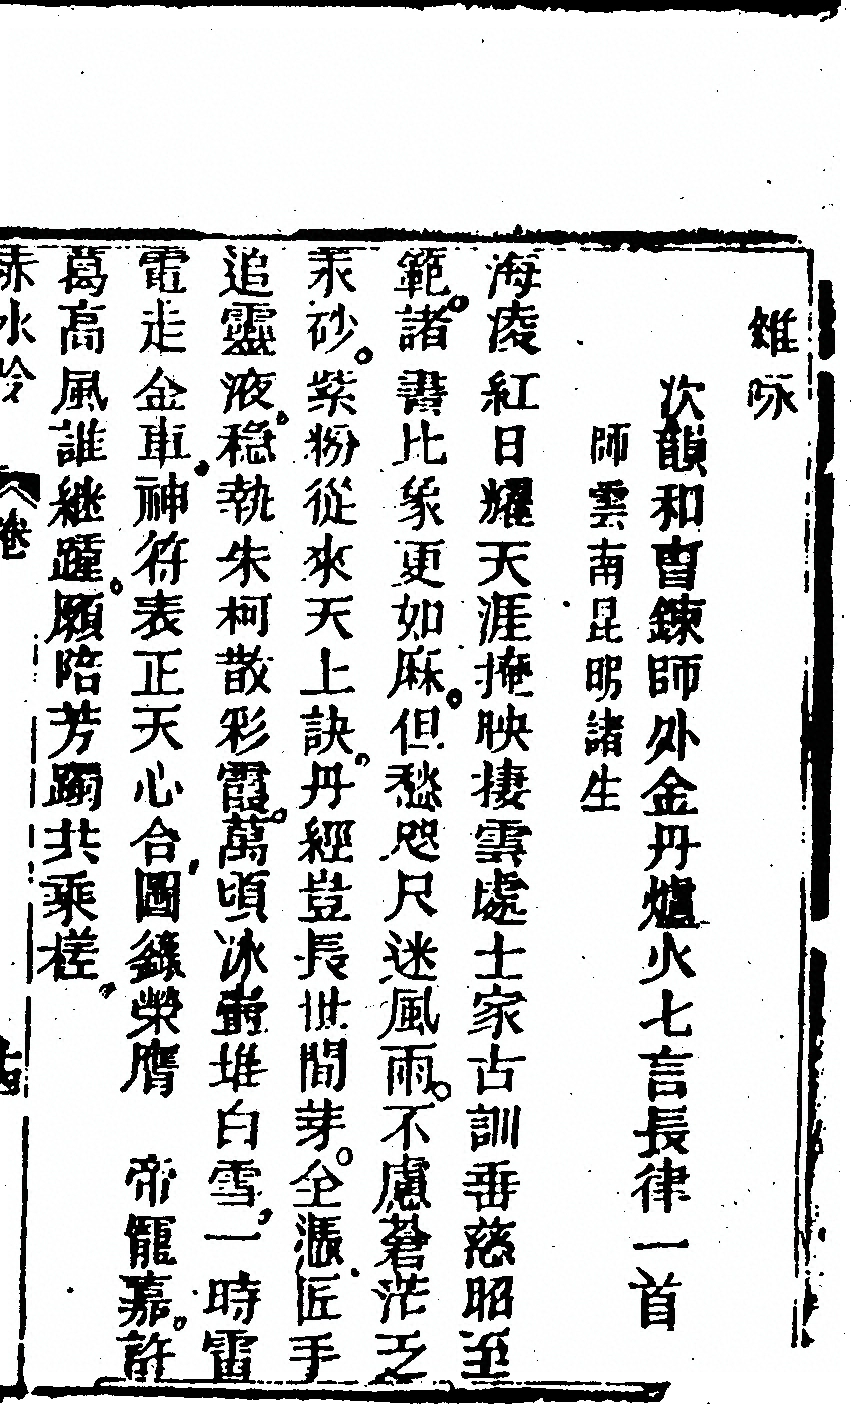 雜咏
次韻和曹鍊師外金丹爐火七言長律一首
師雲南昆明諸生
海凌紅日耀天涯掩映棲雲處士家古訓垂慈昭至
範諸書比象更如麻但愁咫尺迷風雨不慮蒼茫乏
汞砂紫粉從來天上訣丹經豈長世間芽全漲匠手
追靈液穏執朱柯散彩霞萬頃冰壺堆白雪一時雷
電走金車神符表正天心合圖籙榮膺　帝寵嘉許
葛高風誰繼踵願陪芳躅共乘槎
赤水吟
卷